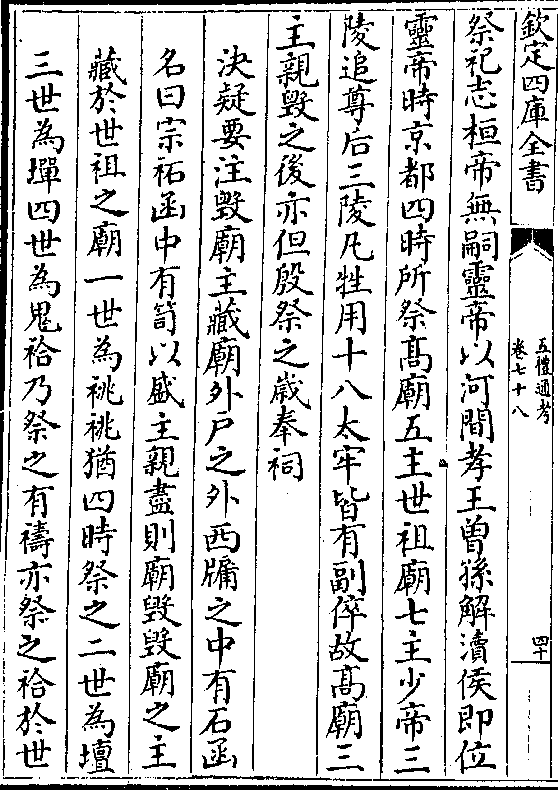 欽定四庫全書
五禮通考
卷七十八
四十
祭祀志桓帝無嗣靈帝以河間孝王曾孫解瀆侯即位
靈帝時京都四時所祭髙廟五主世祖廟七主少帝三
陵追尊后三陵凡牲用十八太牢皆有副倅故髙廟三
主親毀之後亦但殷祭之嵗奉祠
決疑要注毀廟主藏廟外户之外西牖之中有石函
名曰宗祏函中有笥以盛主親盡則廟毀毀廟之主
藏於世祖之廟一世為祧祧猶四時祭之二世為壇
三世為墠四世為鬼祫乃祭之有禱亦祭之祫於世